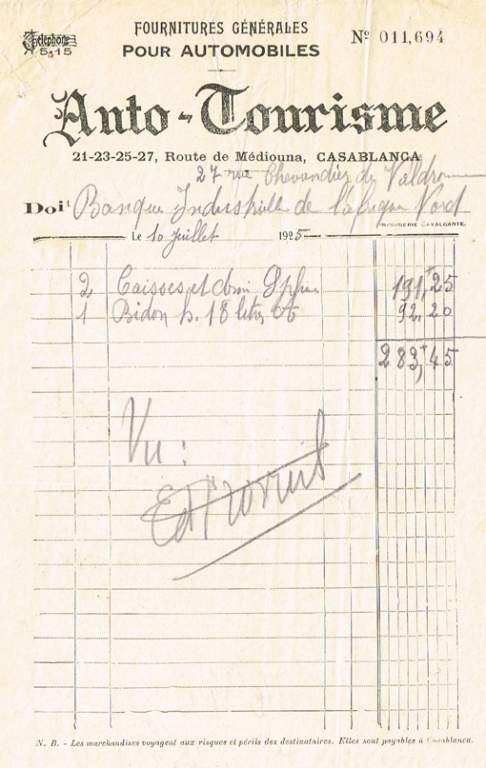 FOURNITURES GÉNÉRALES
Téléphone
5.15
Nº 011,694
POUR AUTOMOBILES
Auto-Tourisme
21-23-25-27, Route de Médiouna, CASABLANCA
27 rue Chevandier de Valdrome
Doit Banque Industrielle de l'afrique Nord
IMPRIMERIE CAVALCANTE.
Le 10 juillet 1925
2 Caisses et demi 191,25
1 Bidon h. 18 litres 92.20
283,45
Vu :
N. B. - Les marchandises voyagent aux risques et périls des destinataires. Elles sont payables à Casablanca.